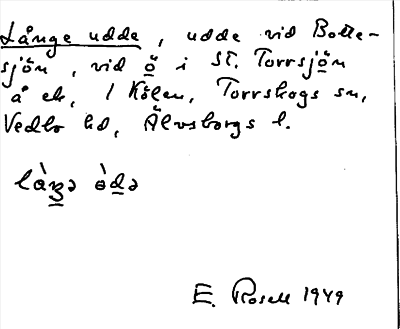 Långe udde, udde vid Botte-
sjön, vid ö i St. Torrsjön
å ek, 1 Kölen, Torrskogs sn,
Vedbo hd, Älvsborgs l.
làŋə òdə
E. Rosell 1949